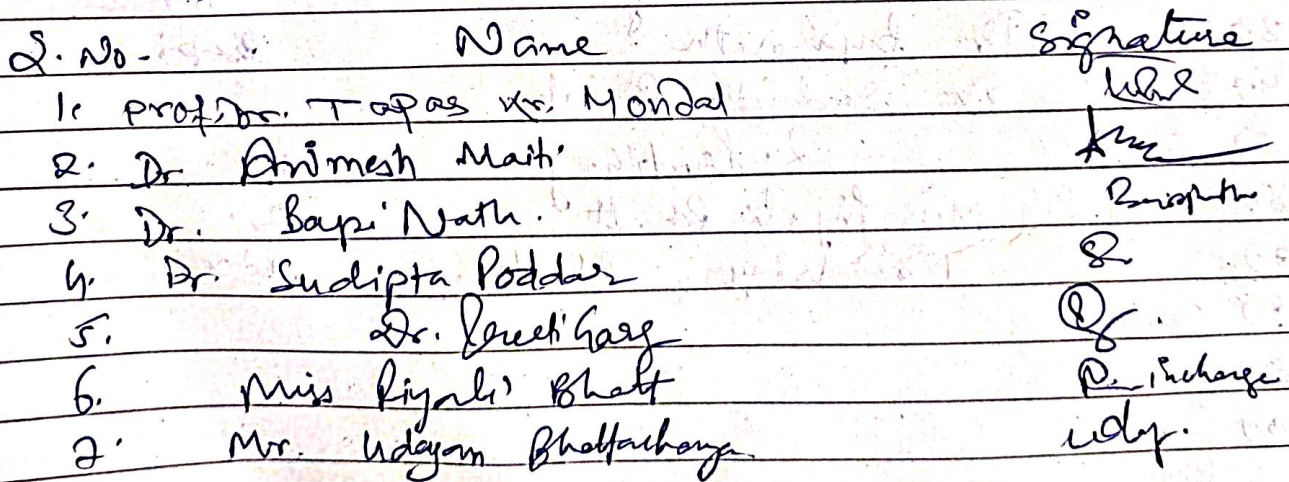 S. No- Name Signature
1. Prof. Dr. Tapas Kr. Mondal
2. Dr Animesh Maiti
3. Dr. Bapi Nath.
4. Dr. Sudipta Poddar
5. Dr. Garg
6. Miss Riyali Bhatt Incharge
7. Mr. Udayan Bhattacharya udy.